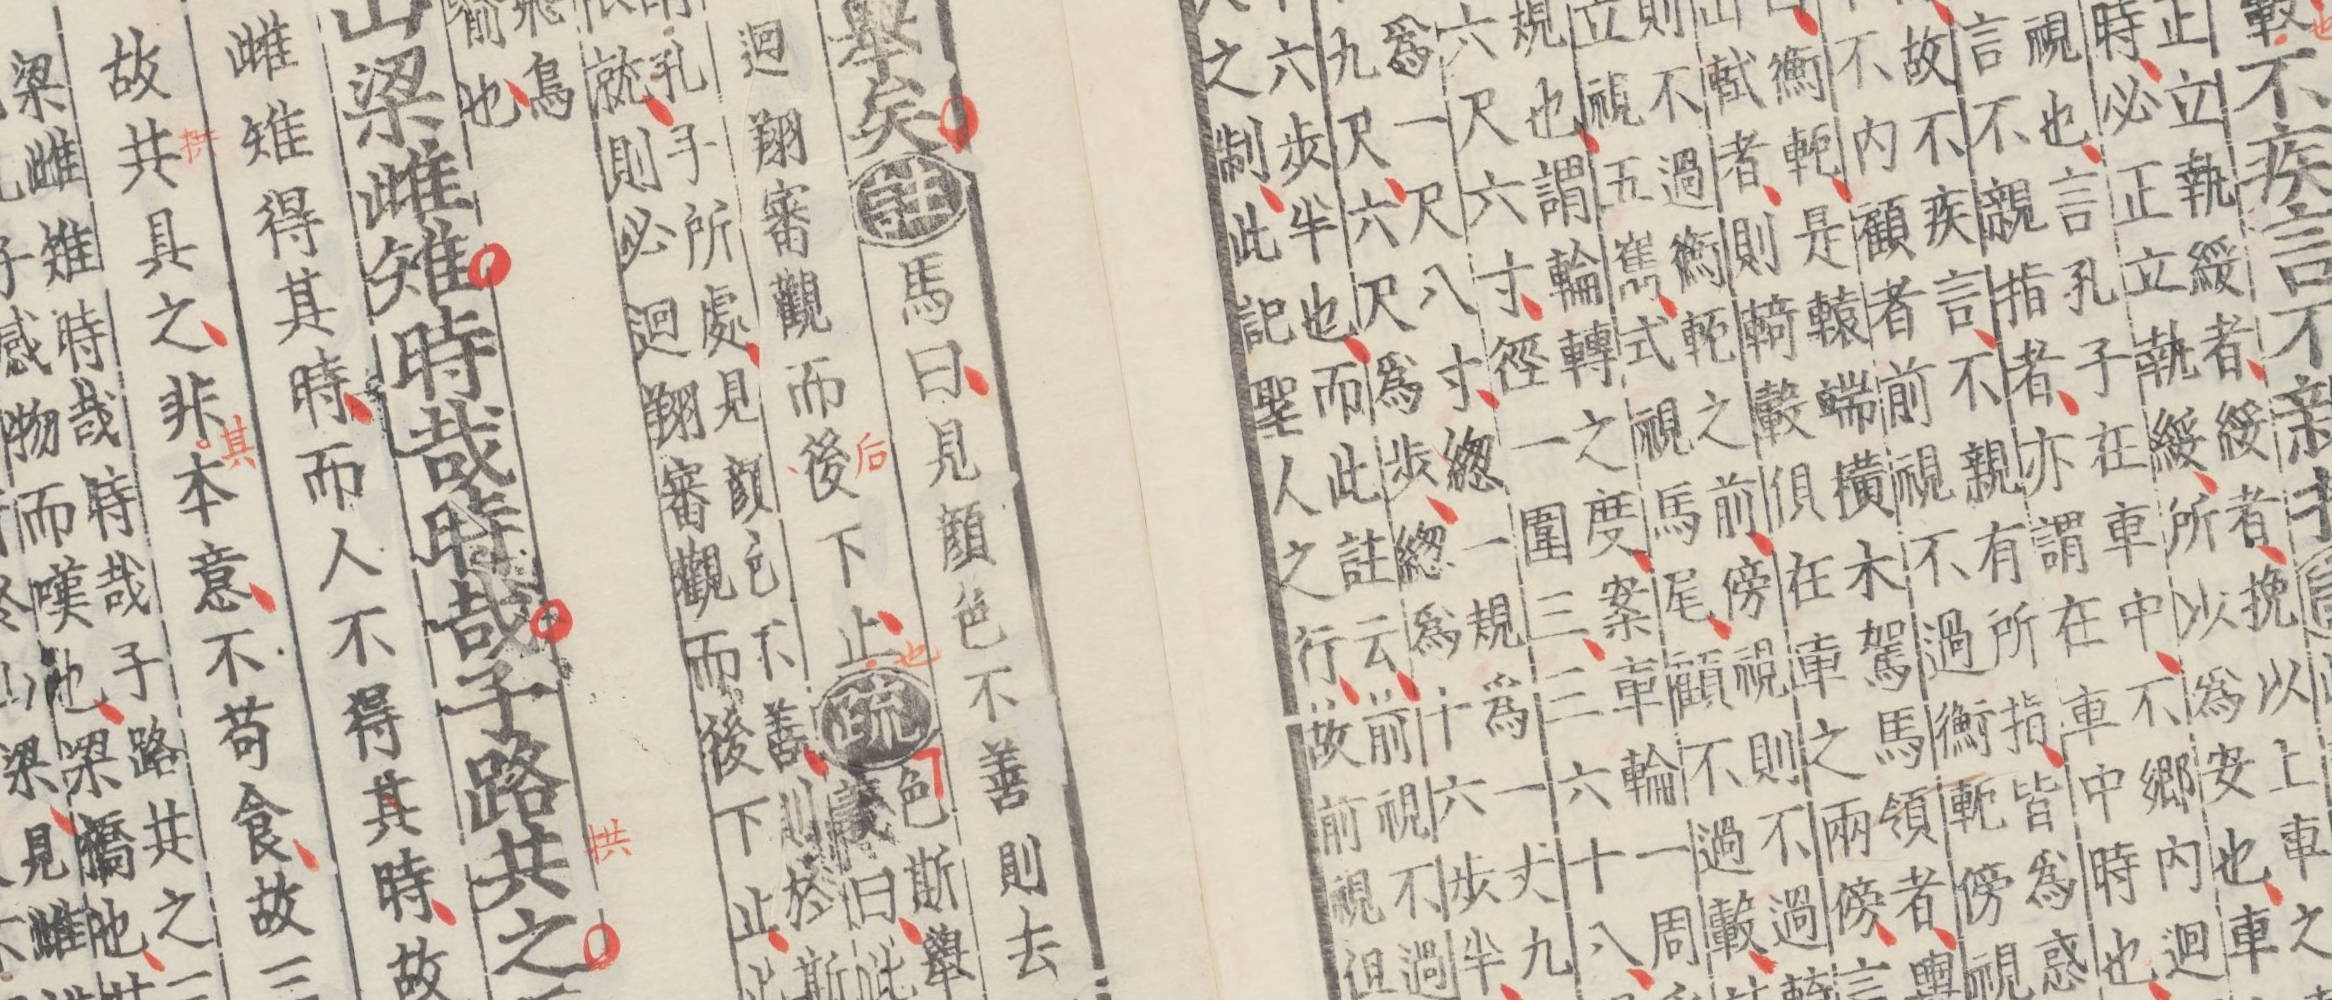 轂不疾言不親指
正立執綏者綏者挽以上車之
時必正立執綏所以為安也車
視也言孔子在車中不鄉内迴
言不親指者亦謂在車中時也
故不疾言不親有所指皆為惑
不不内顧者前視不過衡軛傍視
衡軛是轅端橫木駕馬領者輿
軾者則輢轂俱在車之兩傍言
則不過衡軛之前傍視則不過輢
立視五雋式視馬尾顧不過轂
規也謂輪轉之度案車輪一周
六尺六寸徑一圍三三六十八
為一尺八寸總一規為一丈九
九尺六尺為步總為十六步半
六步半也而此註云前視不過
之制此記聖人之行故前視但
舉矣註馬曰見顏色不善則去
迴翔審觀而後下止疏色斯舉
義曰此
后
也
孔子所處見顏色不善則於斯
就則必迴翔審觀而後下止此
飛鳥
喻也
山梁雌雉時哉時哉子路共之
拱
雌雉得其時而人不得其時故
故共具之非本意不苟食故三
拱
其
梁雌雉時哉時哉子路共之三
子感物而嘆也梁橋也
山梁見雌